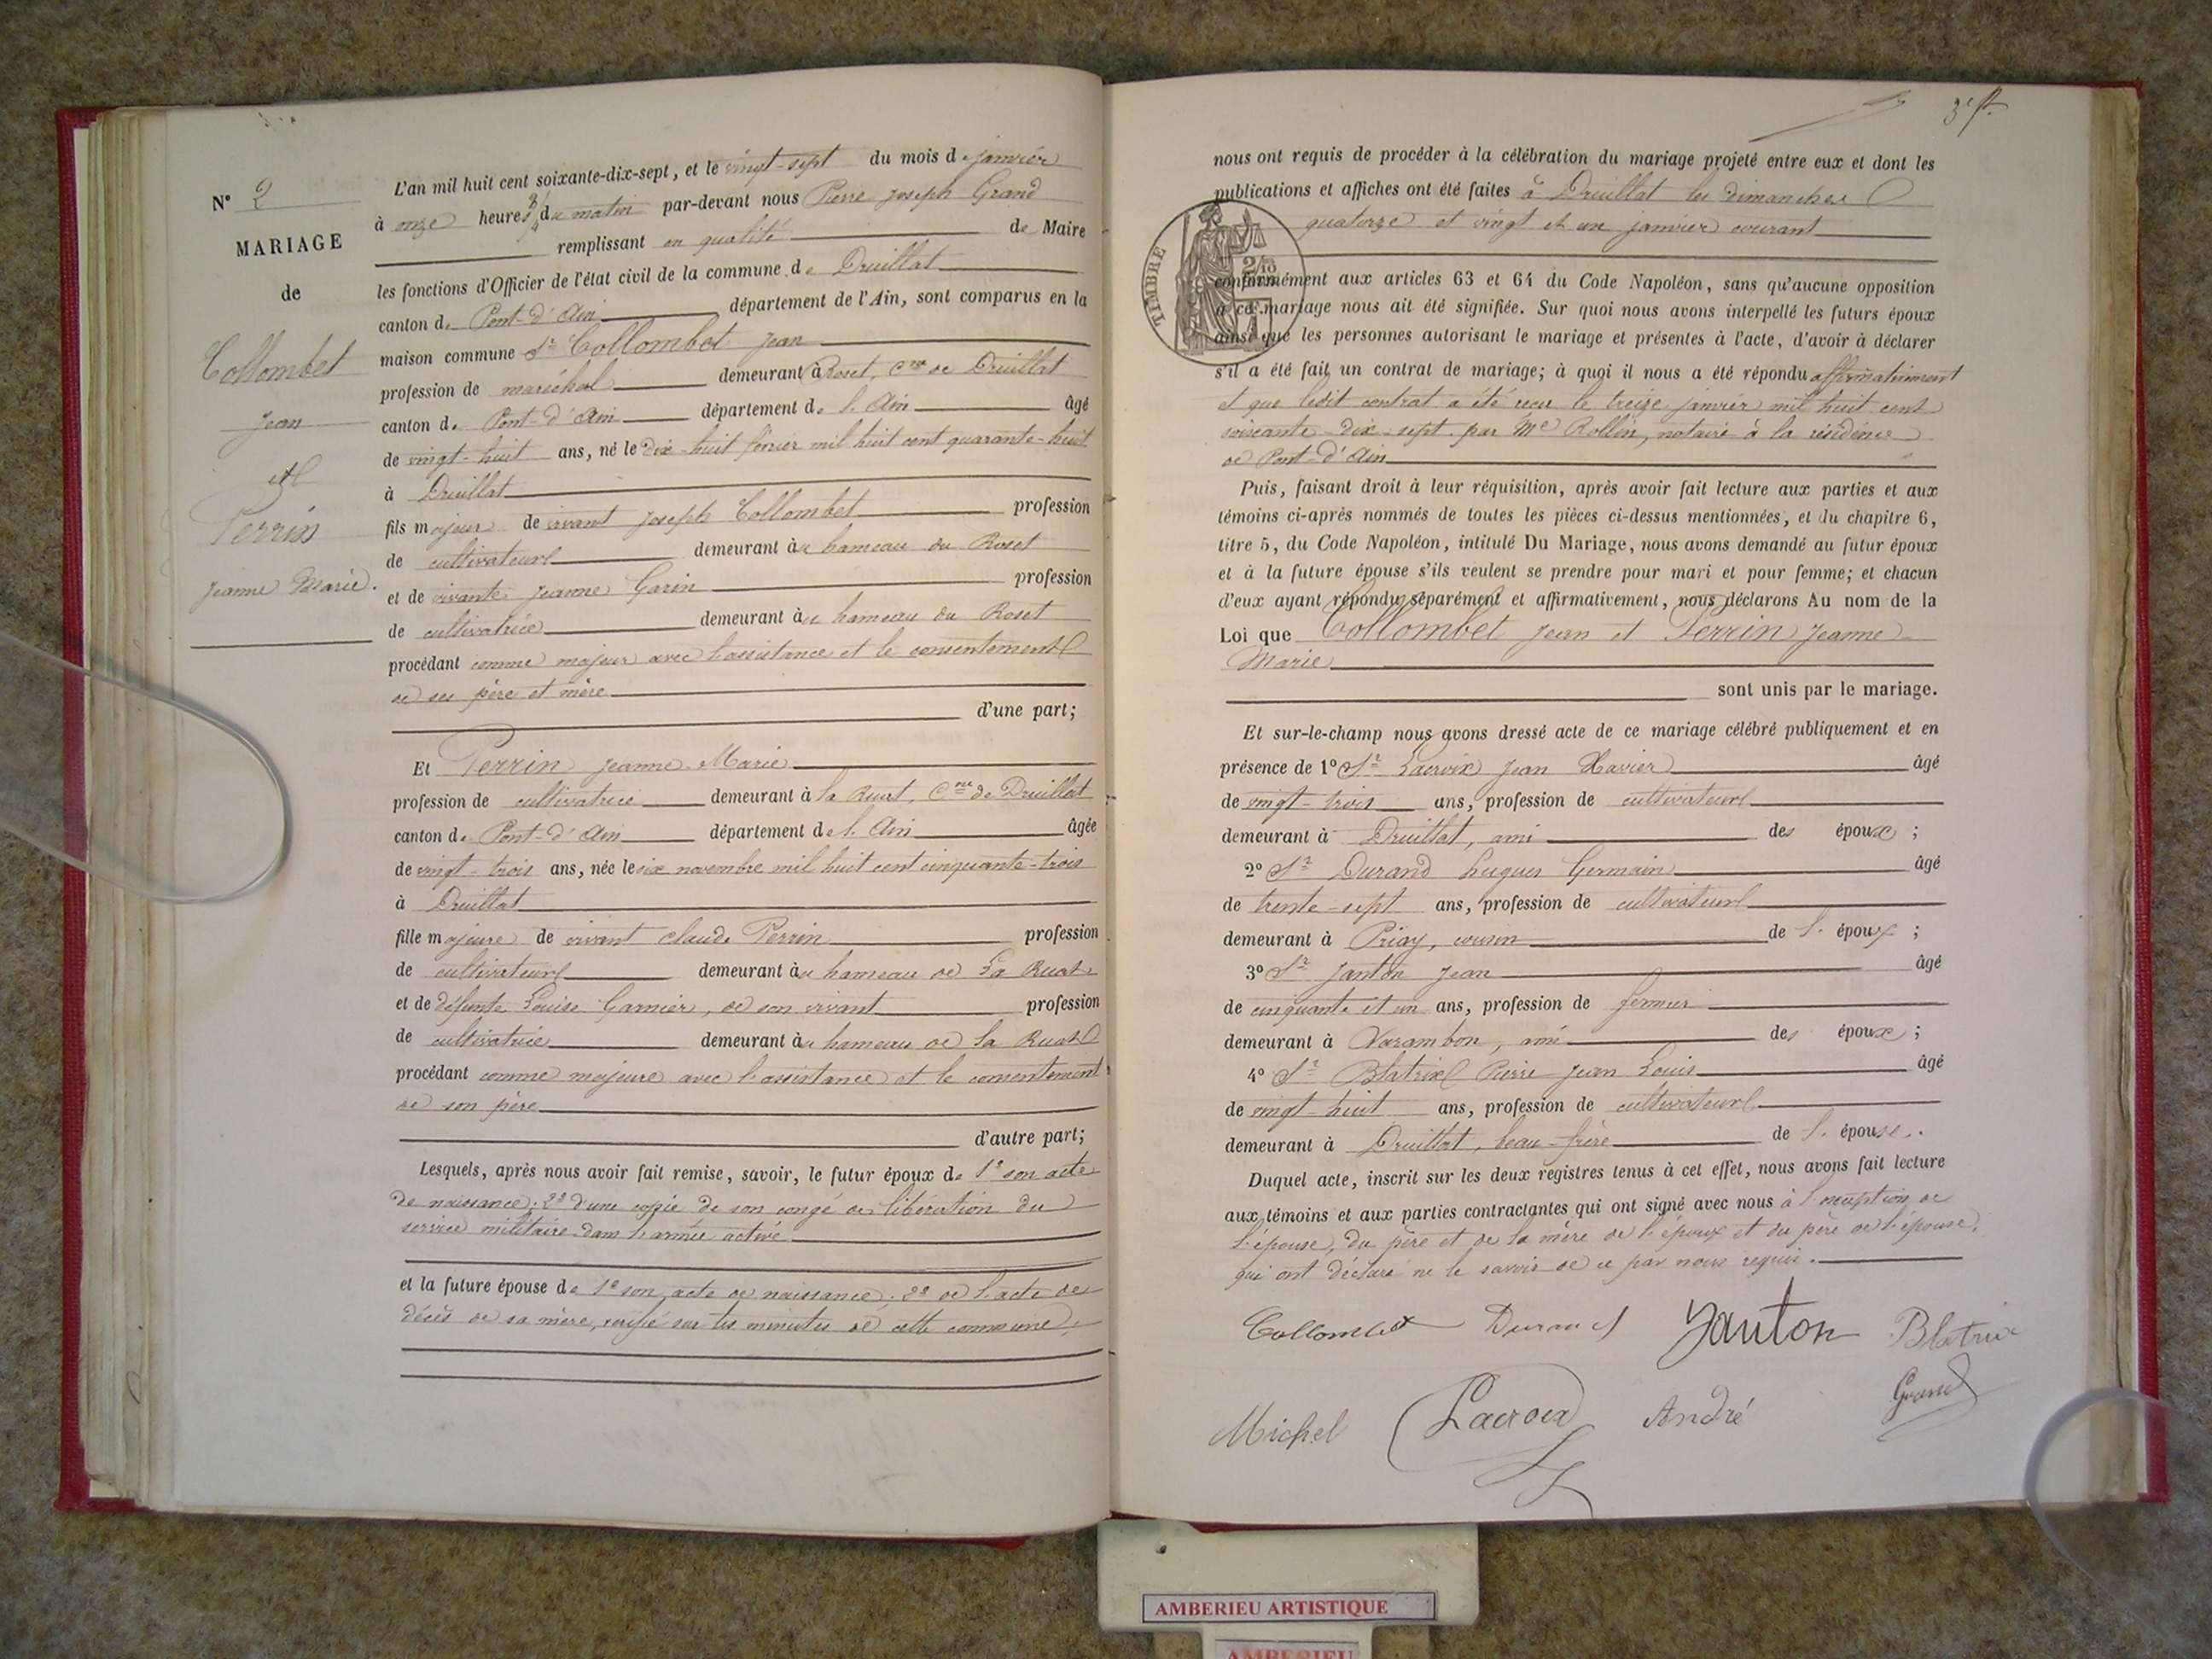 N° 2
MARIAGE
de
Collombet
Jean
et
Perrin
Jeanne Marie.
L'an mil huit cent soixante-dix-sept, et le vingt-sept du mois de janvier
à onze heures 3/4 du matin par-devant nous Pierre Joseph Grand
remplissant en qualité de Maire
les fonctions d'Officier de l'état civil de la commune de Druillat
canton de Pont-d'Ain département de l'Ain, sont comparus en la
maison commune Sr Collombet Jean
profession de maréchal demeurant à Roset, Cne de Druillat
canton de Pont-d'Ain département de l'Ain âgé
de vingt-huit ans, né le dix-huit février mil huit cent quarante-huit
à Druillat
fils majeur de vivant Joseph Collombet profession
de cultivateur demeurant au hameau du Roset
et de vivante Jeanne Garin profession
de cultivatrice demeurant au hameau du Roset
procédant comme majeur avec l'assistance et le consentement
de ses père et mère
d'une part;
Et Perrin Jeanne-Marie
profession de cultivatrice demeurant à la Ruat, Cne de Druillat
canton de Pont-d'Ain département de l'Ain âgée
de vingt-trois ans, née le six novembre mil huit cent cinquante-trois
à Druillat
fille majeure de vivant Claude Perrin profession
de cultivateur demeurant au hameau de La Ruat
et de défunte Louise Garnier, de son vivant profession
de cultivatrice demeurant au hameau de la Ruat
procédant comme majeure avec l'assistance et le consentement
de son père
d'autre part;
Lesquels, après nous avoir fait remise, savoir, le futur époux de 1° son acte
de naissance; 2° d'une copie de son congé de libération du
service militaire dans l'armée active
et la future épouse de 1° son acte de naissance; 2° de l'acte de
décès de sa mère, vérifié sur les minutes de cette commune,
nous ont requis de procéder à la célébration du mariage projeté entre eux et dont les
publications et affiches ont été faites à Druillat les dimanches
quatorze et vingt et un janvier courant
TIMBRE
conformément aux articles 63 et 64 du Code Napoléon, sans qu'aucune opposition
à ce mariage nous ait été signifiée. Sur quoi nous avons interpellé les futurs époux
ainsi que les personnes autorisant le mariage et présentes à l'acte, d'avoir à déclarer
s'il a été fait un contrat de mariage; à quoi il nous a été répondu affirmativement
et que ledit contrat a été reçu le treize janvier mil huit cent
soixante-dix-sept par Me Rollin, notaire à la résidence
de Pont-d'Ain
Puis, faisant droit à leur réquisition, après avoir fait lecture aux parties et aux
témoins ci-après nommés de toutes les pièces ci-dessus mentionnées, et du chapitre 6,
titre 5, du Code Napoléon, intitulé Du Mariage, nous avons demandé au futur époux
et à la future épouse s'ils veulent se prendre pour mari et pour femme; et chacun
d'eux ayant répondu séparément et affirmativement, nous déclarons Au nom de la
Loi que Collombet Jean et Perrin Jeanne
Marie
sont unis par le mariage.
Et sur-le-champ nous avons dressé acte de ce mariage célébré publiquement et en
présence de 1° Sr Lacroix Jean Xavier âgé
de vingt-trois ans, profession de cultivateur
demeurant à Druillat, ami des époux;
2° Sr Durand Hugues Germain âgé
de trente-sept ans, profession de cultivateur
demeurant à Priay, cousin de l'époux;
3° Sr Janton Jean âgé
de cinquante et un ans, profession de fermier
demeurant à Varambon, ami des époux;
4° Sr Blatrix Pierre Jean Louis âgé
de vingt-huit ans, profession de cultivateur
demeurant à Druillat, beau-frère de l'épouse.
Duquel acte, inscrit sur les deux registres tenus à cet effet, nous avons fait lecture
aux témoins et aux parties contractantes qui ont signé avec nous à l'exception de
l'épouse, du père et de la mère de l'époux et du père de l'épouse,
qui ont déclaré ne le savoir de ce par nous requis.
Collombet Durand Janton Blatrix
Michel Lacroix André Grand
AMBERIEU ARTISTIQUE
AMBERIEU